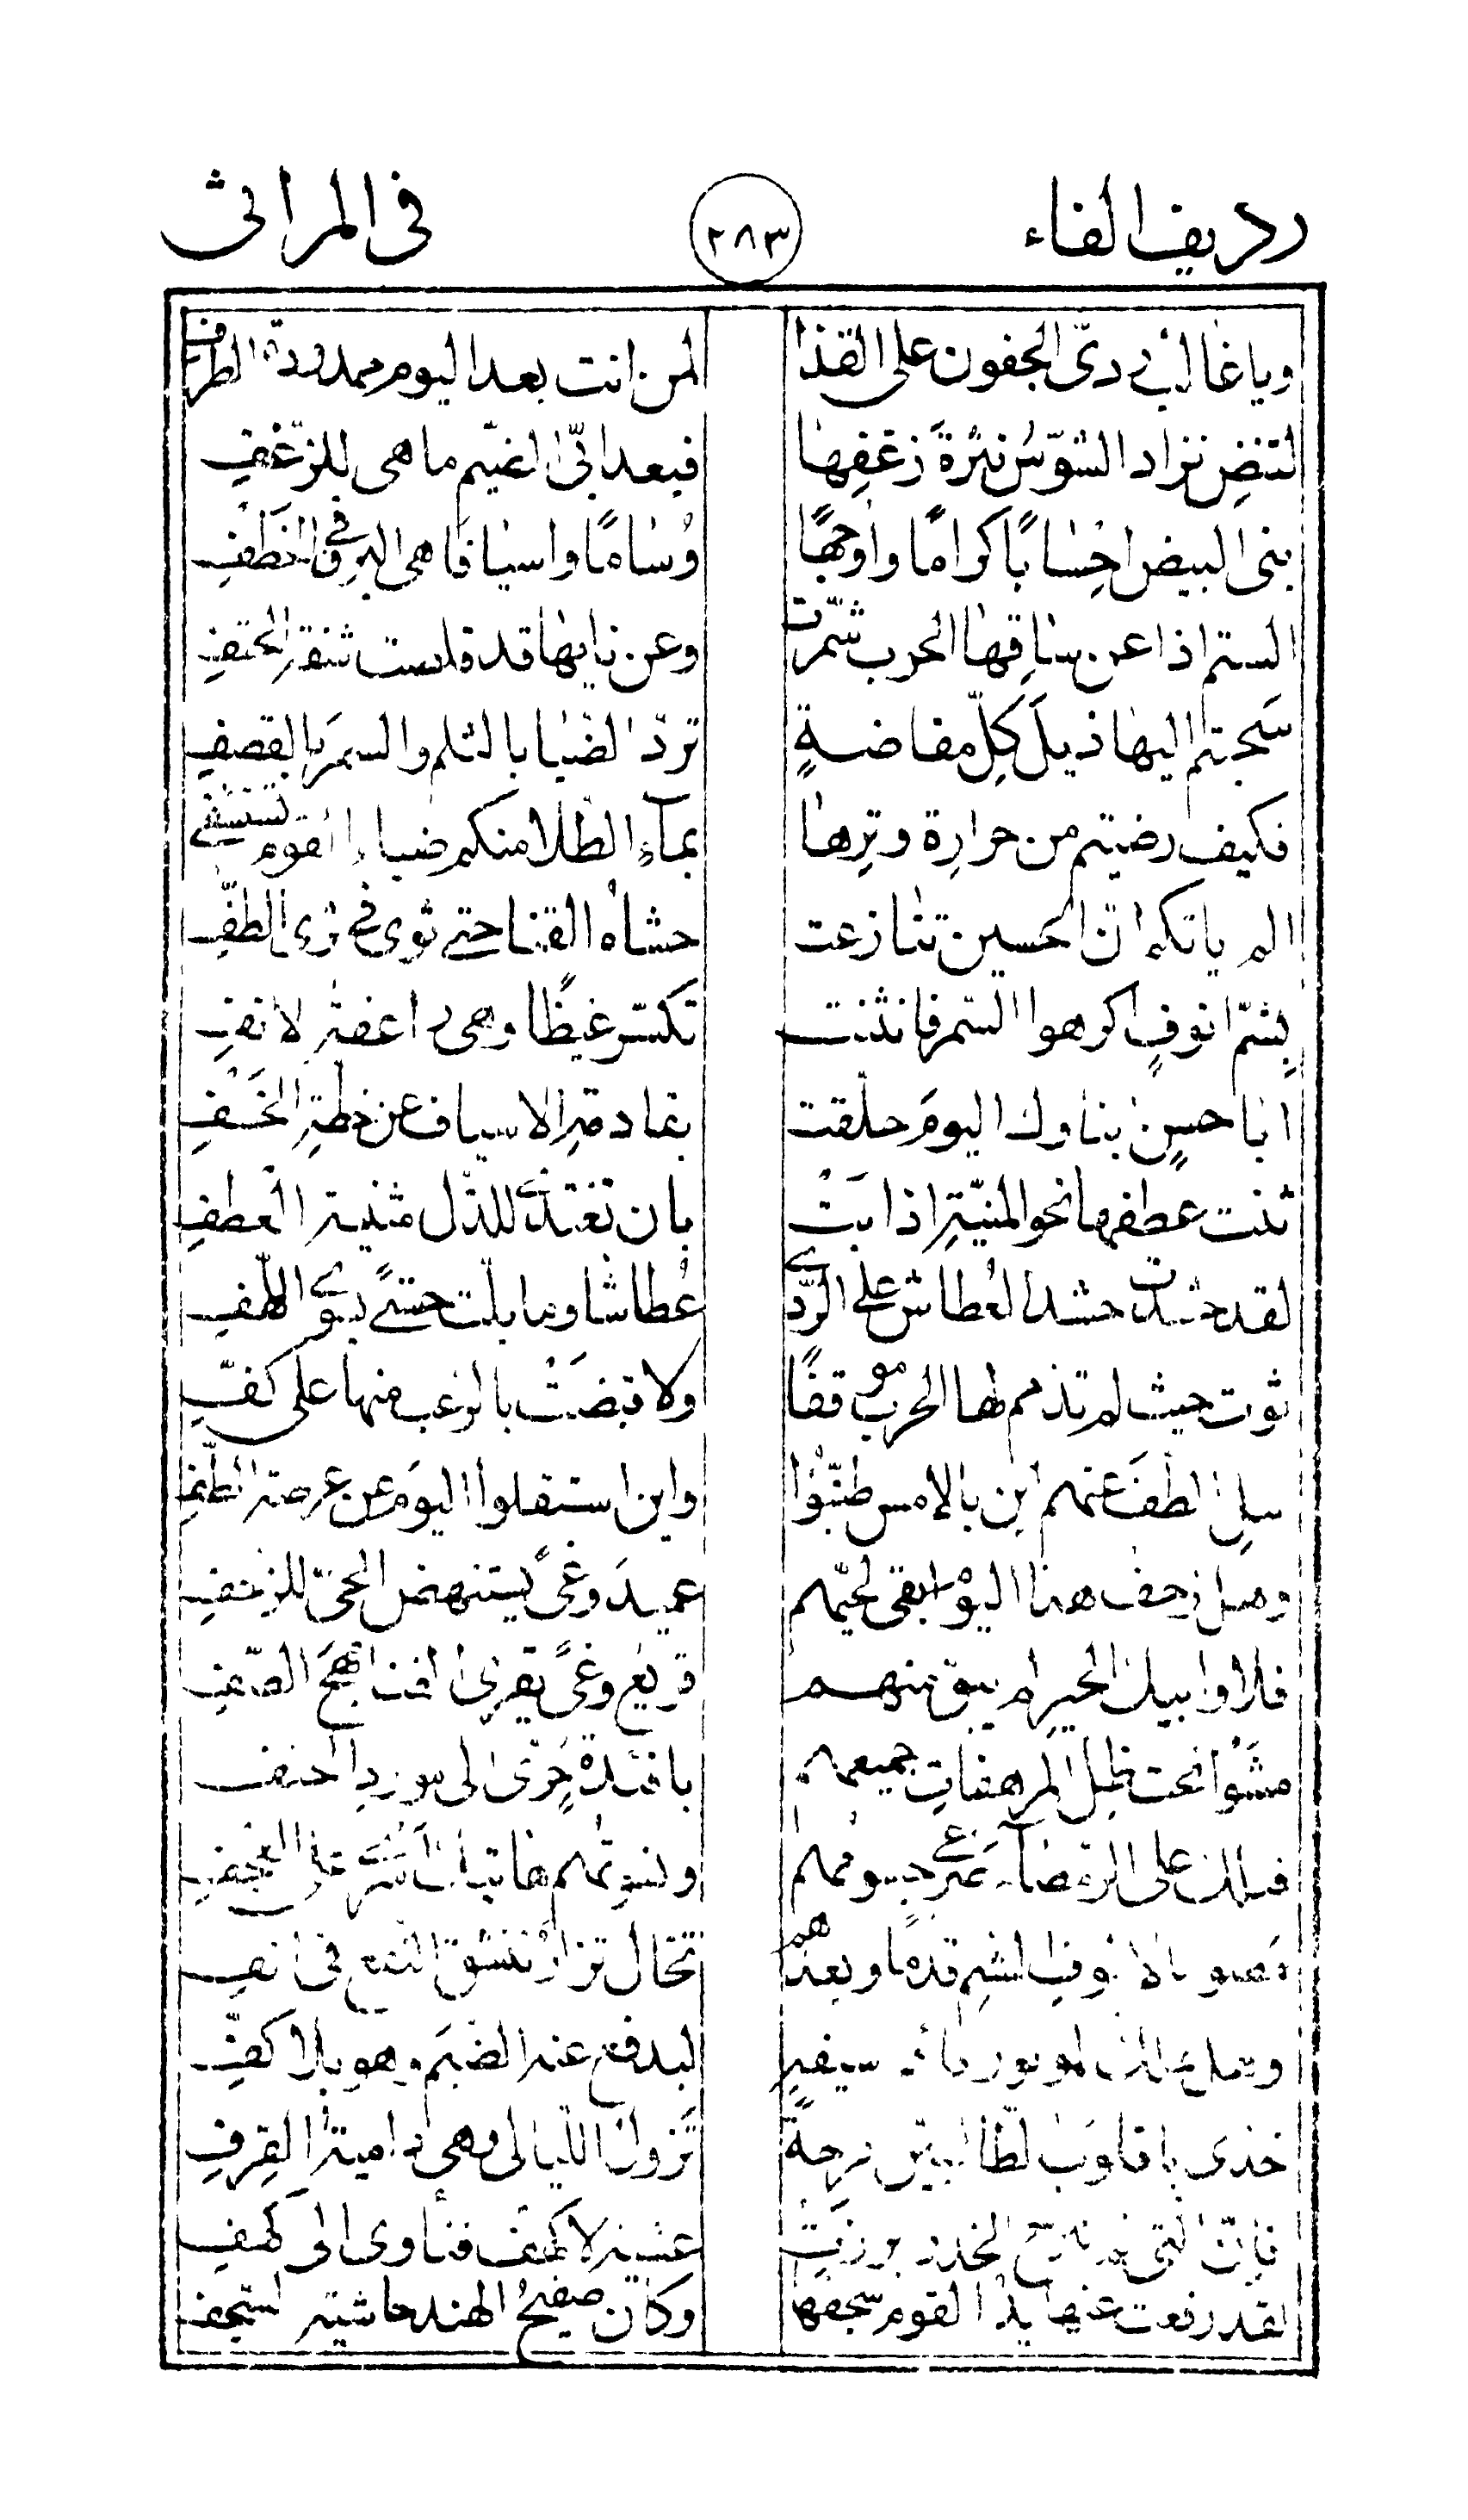 رديف الفاء ٢٨٣ فى المراثى
ويا غالب ردّى الجفون على القذا لمن انت بعد اليوم ممدودة الطرف
لتنضِ نزار الشوّس نثرةَ زغفِها فبعد ابىّ الضيم ما هى للزّغفِ
بنى البيض احسٰابًا كرامًا واوجهًا وُسٰامًا واسيافًا هى البرق فى الخَطفِ
الستم اذا عن سٰاقِهٰا الحرب شمّرت وعن نابهٰا قد قلصت شفة الحتفِ
سَحبتم اليهٰا ذيلَ كلِّ مفاضةٍ تردّ الضبٰا بالثلم والسمرَ بالقصفِ
فكيف رضيتم من حرارة وترِهٰا بمآءِ الطلا منكم ضباء القوم تستشفى
الم ياتكم انّ الحسين تنٰازعت حشاه القنا حتى ثوى فى ثرى الطفّ
بشمّ انوفٍ اكرهوا السّمر فانثنت تكسّر غيظًا وهى راعفة الانفِ
ابا حسنٍ ابناوك اليومَ حلّقت بقادمة الاسياف عن خطة الخسْفِ
ثنت عطفها نحو المنيّةِ اذ ابَتْ بان تغتدى للذّل مثنية العطفِ
لقد حشدت حشد العُطاش على الرّدى عُطاشا وما بلّت حشىً بسوى اللّهفِ
ثوت حيث لم تذمم لها الحرب موقفًا ولا قبضَتْ بالرّعب منها على كفّ
سلِ الطفَ عنهم اين بالامس طنّبُوا واين استقلوا اليومَ عن عرصة الطّفِ
وهل زحف هذا اليوم ابقى لحيّهم عميدَ وغىً يستنهض الحىّ للزّحفِ
فلا وابيك الخير لم يبق منهم قريع وغىً يقرى القنا مهج الصّفِ
مشَوْا تحت ظلّ المرهفاتِ جميعهم بافئدةٍ حرّى الى مورد الحتف
فتلك على الرّمضآء صرعى جسومُهم ونسوتُهم هاتيك اسرى على العجفِ
مضوا بالانوف الشمّ قدمًا وبعدَهم تخال نزارٌ تنشق النقع فى انفِ
وهل يملك الموتور قائم سيفهِ ليدفع عنه الضيمَ وهو بلا كفِّ
خذى يا قلوبَ الطّالبيّين قرحةً تزولُ اللّيالى وهى داميةُ القِرفِ
فانّ التى لم تبرح الخدر برزَتْ عشيّة لا كهف فتأوى الى كهفِ
لقد رفعت عنهٰا يدُ القوم سجفهٰا وكان صفيحُ الهند حاشية السّجف